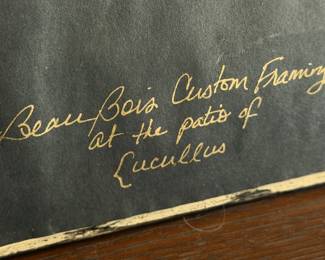 Beau Bois Custom Framing
at the patio of
Lucullus